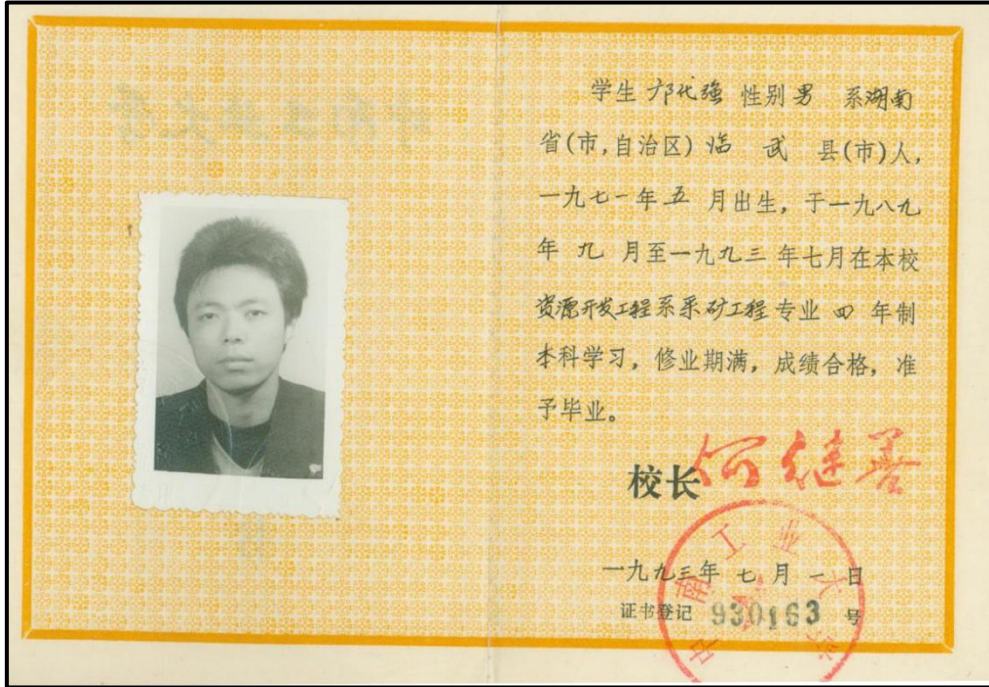 学生 邝代强 性别 男 系湖南
省(市,自治区) 临 武 县(市)人,
一九七一年 五 月出生, 于一九八九
年 九 月至一九九三 年七月在本校
资源开发工程系采矿工程 专业 四 年制
本科学习, 修业期满, 成绩合格, 准
予毕业。
校长 何继善
一九九三年 七 月 一 日
证书登记 930163 号
中南工业大学